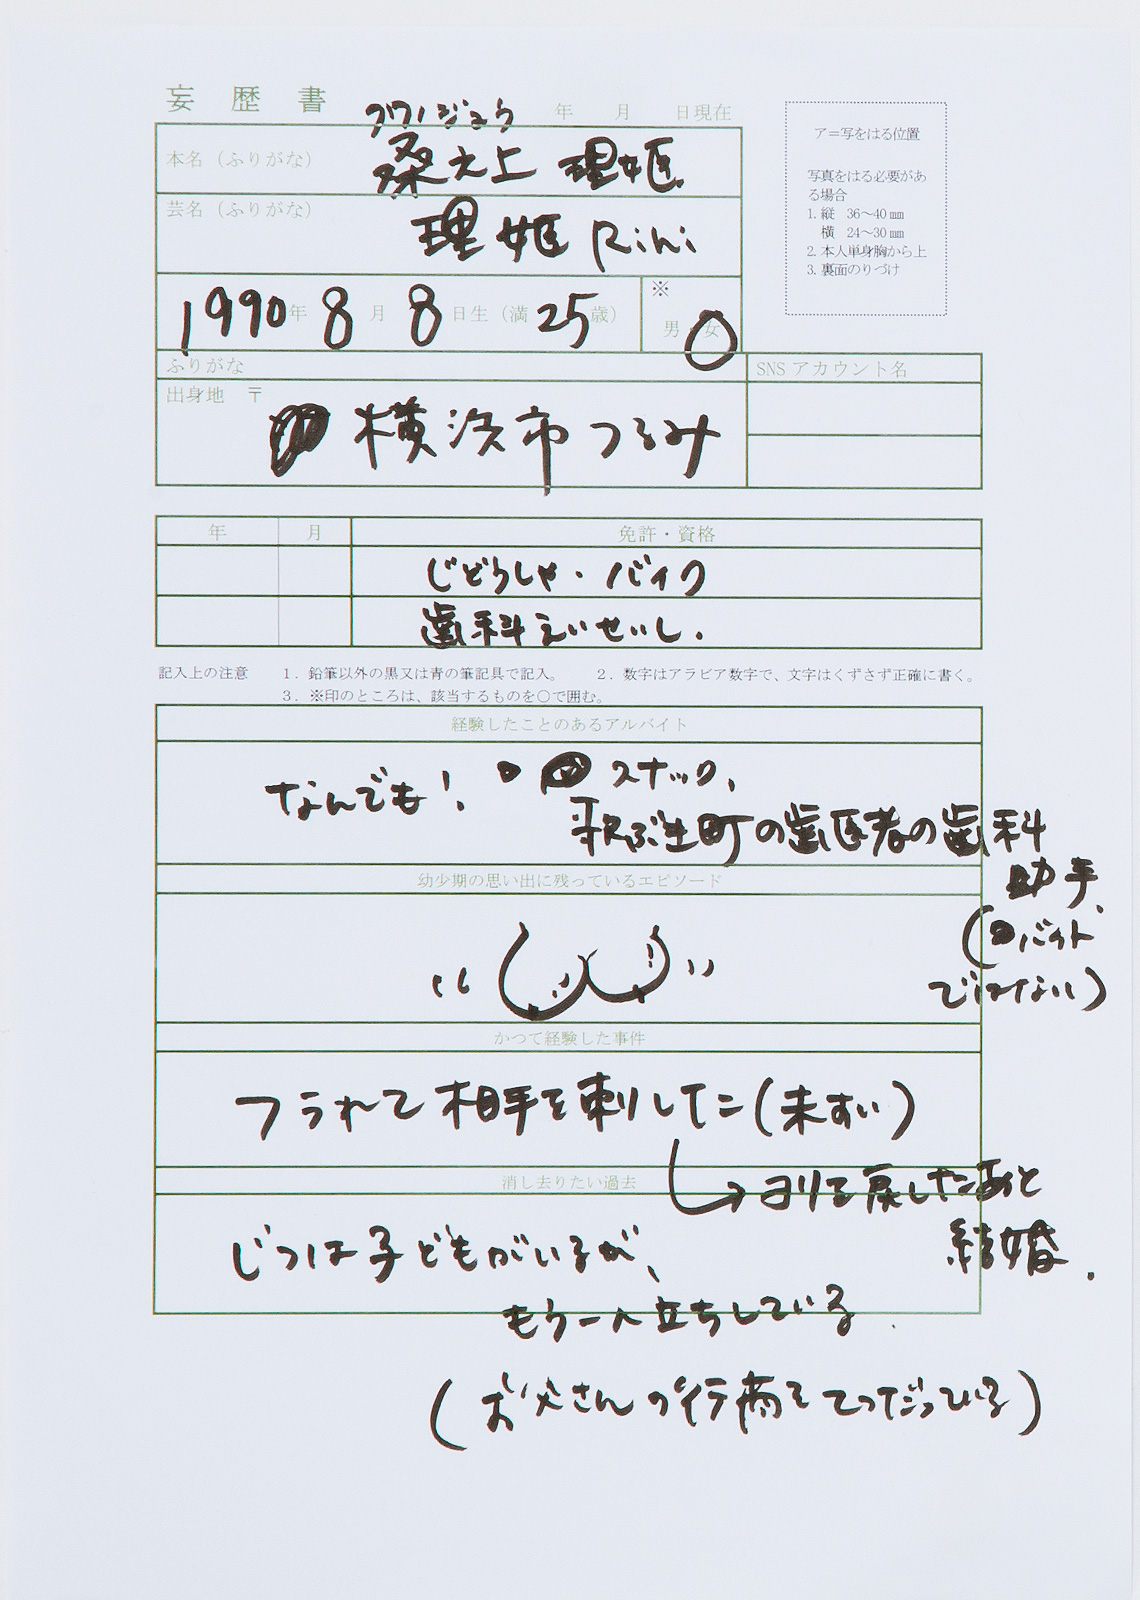 妄歴書
年 月 日現在
クワノジョウ
本名（ふりがな） 桑之上 理姫
芸名（ふりがな）
理姫 Rihi
1990年 8月 8日生（満25歳）
※
男・女
ア＝写をはる位置
写真をはる必要があ
る場合
1. 縦 36～40㎜
横 24～30㎜
2. 本人単身胸から上
3. 裏面のりづけ
ふりがな
出身地 〒
横浜市つるみ
SNSアカウント名
年 月 免許・資格
じどうしゃ・バイク
歯科えいせいし．
記入上の注意 1．鉛筆以外の黒又は青の筆記具で記入。 2．数字はアラビア数字で、文字はくずさず正確に書く。
3．※印のところは、該当するものを○で囲む。
経験したことのあるアルバイト
なんでも！ スナック、
歌ぶ生町の歯医者の歯科
助手、
（バイト
ではない）
幼少期の思い出に残っているエピソード
かつて経験した事件
フられて相手を刺した（未すい）
→ヨリを戻したあと
結婚．
消し去りたい過去
じつは子どもがいるが、
もう一人立ちしている．
（お父さんの行商をてつだっている）